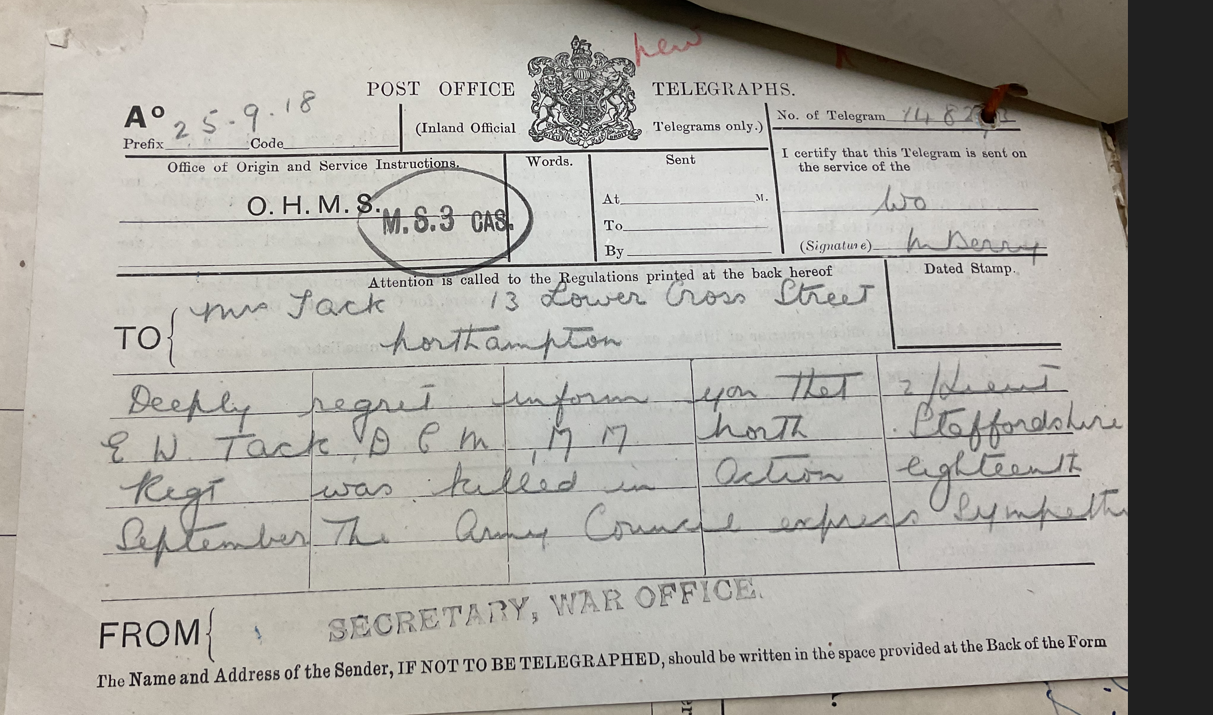 new
POST OFFICE TELEGRAPHS.
Aº 25-9-18
Prefix Code
(Inland Official Telegrams only.)
No. of Telegram
Office of Origin and Service Instructions.
Words.
Sent
At M.
To
By
I certify that this Telegram is sent on
the service of the
WO
(Signature) M Berry
O. H. M. S.
M.S.3 CAS.
Attention is called to the Regulations printed at the back hereof
Dated Stamp.
TO Mrs Tack 13 Lower Cross Street
Northampton
Deeply regret inform you that 2/Lieut
E W. Tack, D C M, M M. North Staffordshire
Regt was killed in Action eighteenth
September The Army Council express Sympathy
FROM SECRETARY, WAR OFFICE.
The Name and Address of the Sender, IF NOT TO BE TELEGRAPHED, should be written in the space provided at the Back of the Form